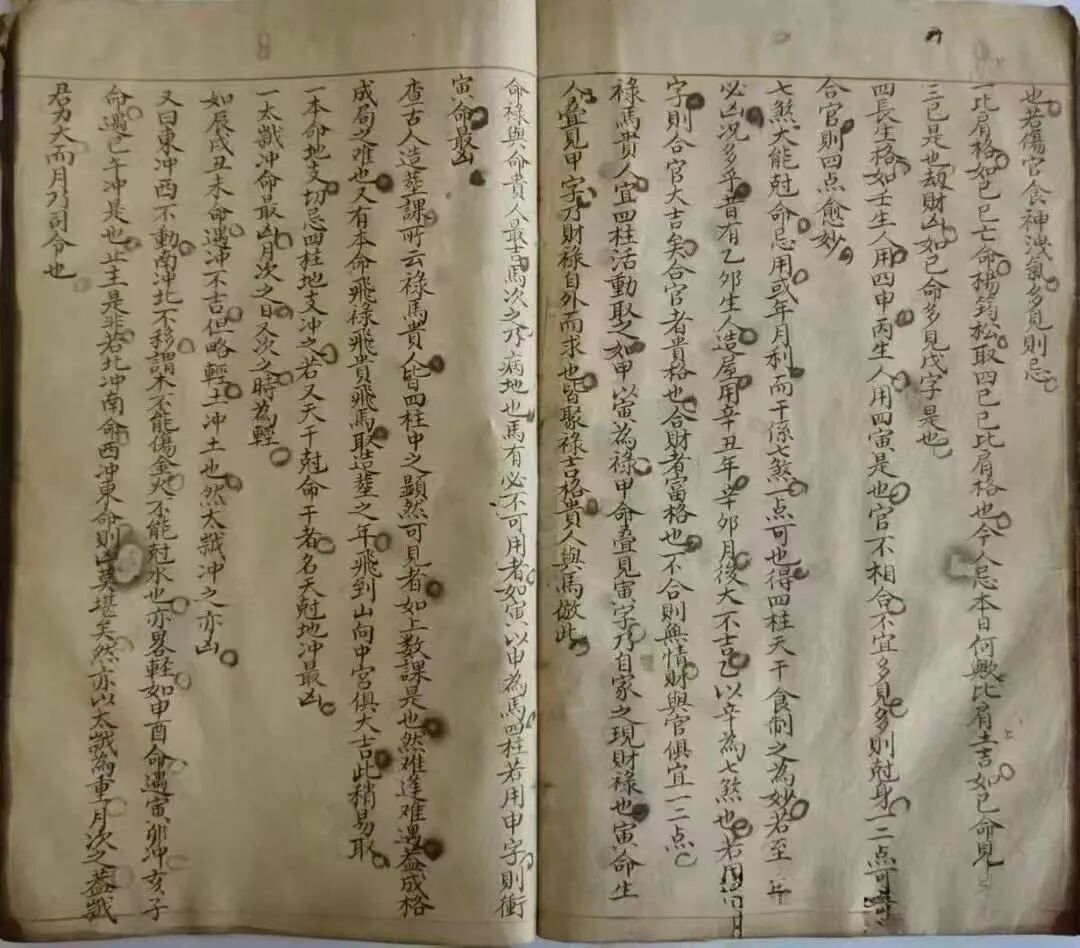 也若傷官食神洩氣多見則忌
一比肩格如己巳亡命楊筠松取四己巳比肩格也今人忌本日何歟比肩主吉如己命見
三己是也刼財凶如己命多見戊字是也
四長生格如壬生人用四申丙生人用四寅是也官不相合不宜多見多則尅身一二點可
合官則四点愈妙
七煞大能尅命忌用或年月利而干係七煞一点可也得四柱天干食制之為妙若至
必凶况多乎昔有乙卯生人造屋用辛丑年辛卯月後大不吉乙以辛為七煞也若用
字則合官大吉矣合官者貴格也合財者富格也不合則無情財與官俱宜一二点
祿馬貴人宜四柱活動取之如甲以寅為祿甲命叠見寅字乃自家之現財祿也寅命生
人叠見甲字乃財祿自外而求也皆聚祿吉格貴人與馬倣此
命祿與命貴人最吉馬次之乃病地也馬有必不可用者如寅以申為馬四柱若用申字則衝
寅命最凶
查古人造葬課所云祿馬貴人皆四柱中之顯然可見者如上数課是也然难逢难遇蓋成格
成局之难也又有本命飛祿飛貴飛馬取造葬之年飛到山向中宮俱大吉此稍易取
一本命地支切忌四柱地支冲之若又天干尅命干者名天尅地冲最凶
一太歲冲命最凶月次之日又次之時為輕
如辰戌丑未命遇冲不吉但略輕土冲土也然太歲冲之亦凶
又曰東沖西不動南沖北不移謂木不能傷金火不能尅水也亦畧軽如申酉命遇寅卯冲亥子
命遇巳午冲是也止主是非若北冲南命西沖東命則凶莫堪矣然亦以太歲為重月次之蓋歲
君力大而月乃司令也